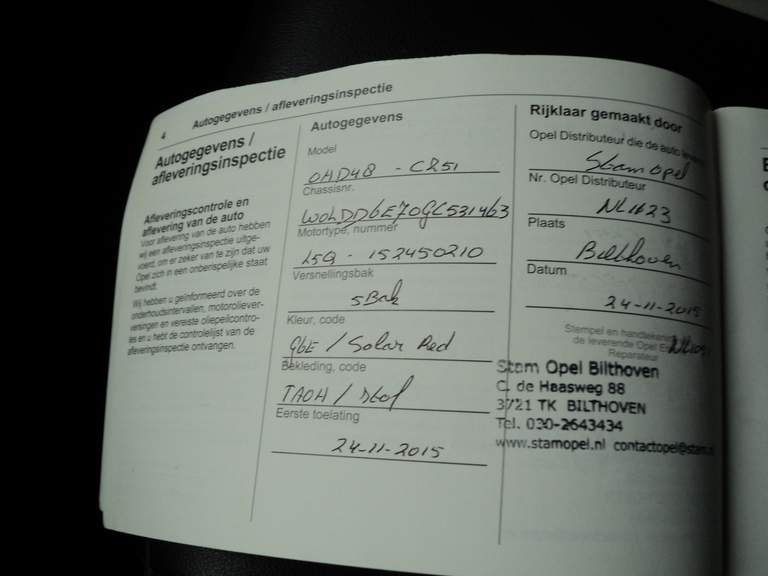 4 Autogegevens / afleveringsinspectie
Autogegevens /
afleveringsinspectie
Afleveringscontrole en
aflevering van de auto
Voor aflevering van de auto hebben
wij een afleveringsinspectie uitge-
voerd, om er zeker van te zijn dat uw
Opel zich in een onberispelijke staat
bevindt.
Wij hebben u geïnformeerd over de
onderhoudsintervallen, motoroliever-
versingen en vereiste oliepeilcontro-
les en u hebt de controlelijst van de
afleveringsinspectie ontvangen.
Autogegevens
Model
0HD48 - CR51
Chassisnr.
W0LDD6E70GC531463
Motortype, nummer
L5Q - 152450210
Versnellingsbak
5Bak
Kleur, code
GbE / Solar Red
Bekleding, code
TAOH /
Eerste toelating
24-11-2015
Rijklaar gemaakt door
Opel Distributeur die de auto
Stam Opel
Nr. Opel Distributeur
NL1123
Plaats
Bilthoven
Datum
24-11-2015
Stempel en
de leverende Opel
Reparateur
Stam Opel Bilthoven
C. de Haasweg 88
3721 TK BILTHOVEN
Tel. 030-2643434
www.stamopel.nl